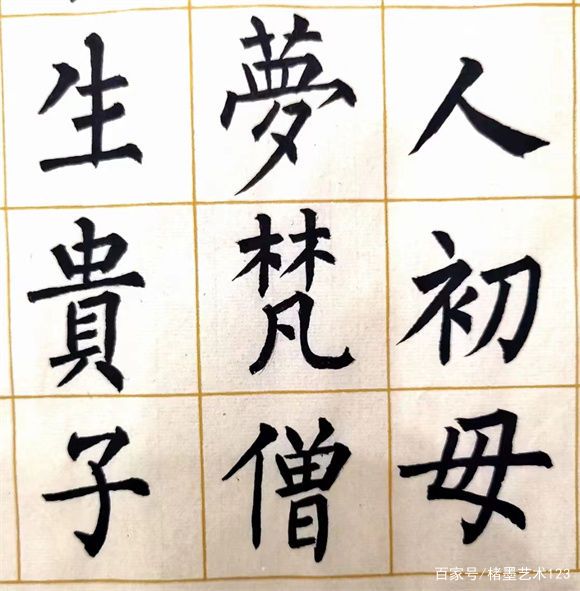 人初母
夢梵僧
生貴子
百家号/楮墨艺术123